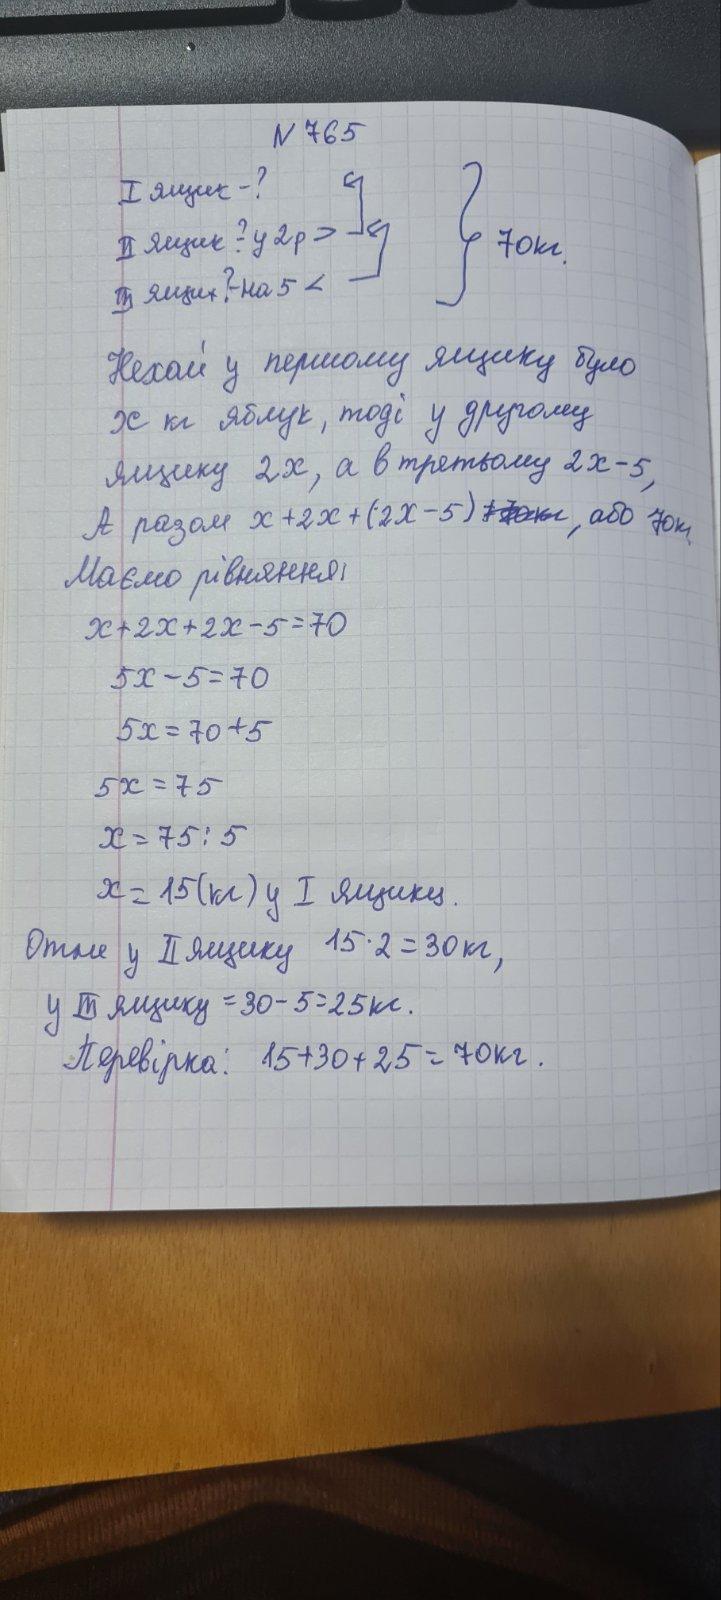 N 765
I ящик - ?
II ящик - ? у 2 р >
III ящик - ? на 5 <
70 кг.
Нехай у першому ящику було
x кг яблук, тоді у другому
ящику 2x, а в третьому 2x-5,
А разом x+2x+(2x-5), або 70кг
Маємо рівняння:
x+2x+2x-5=70
5x-5=70
5x=70+5
5x=75
x=75:5
x=15(кг) у I ящику.
Отже у II ящику 15·2=30кг,
у III ящику =30-5=25кг.
Перевірка: 15+30+25=70кг.